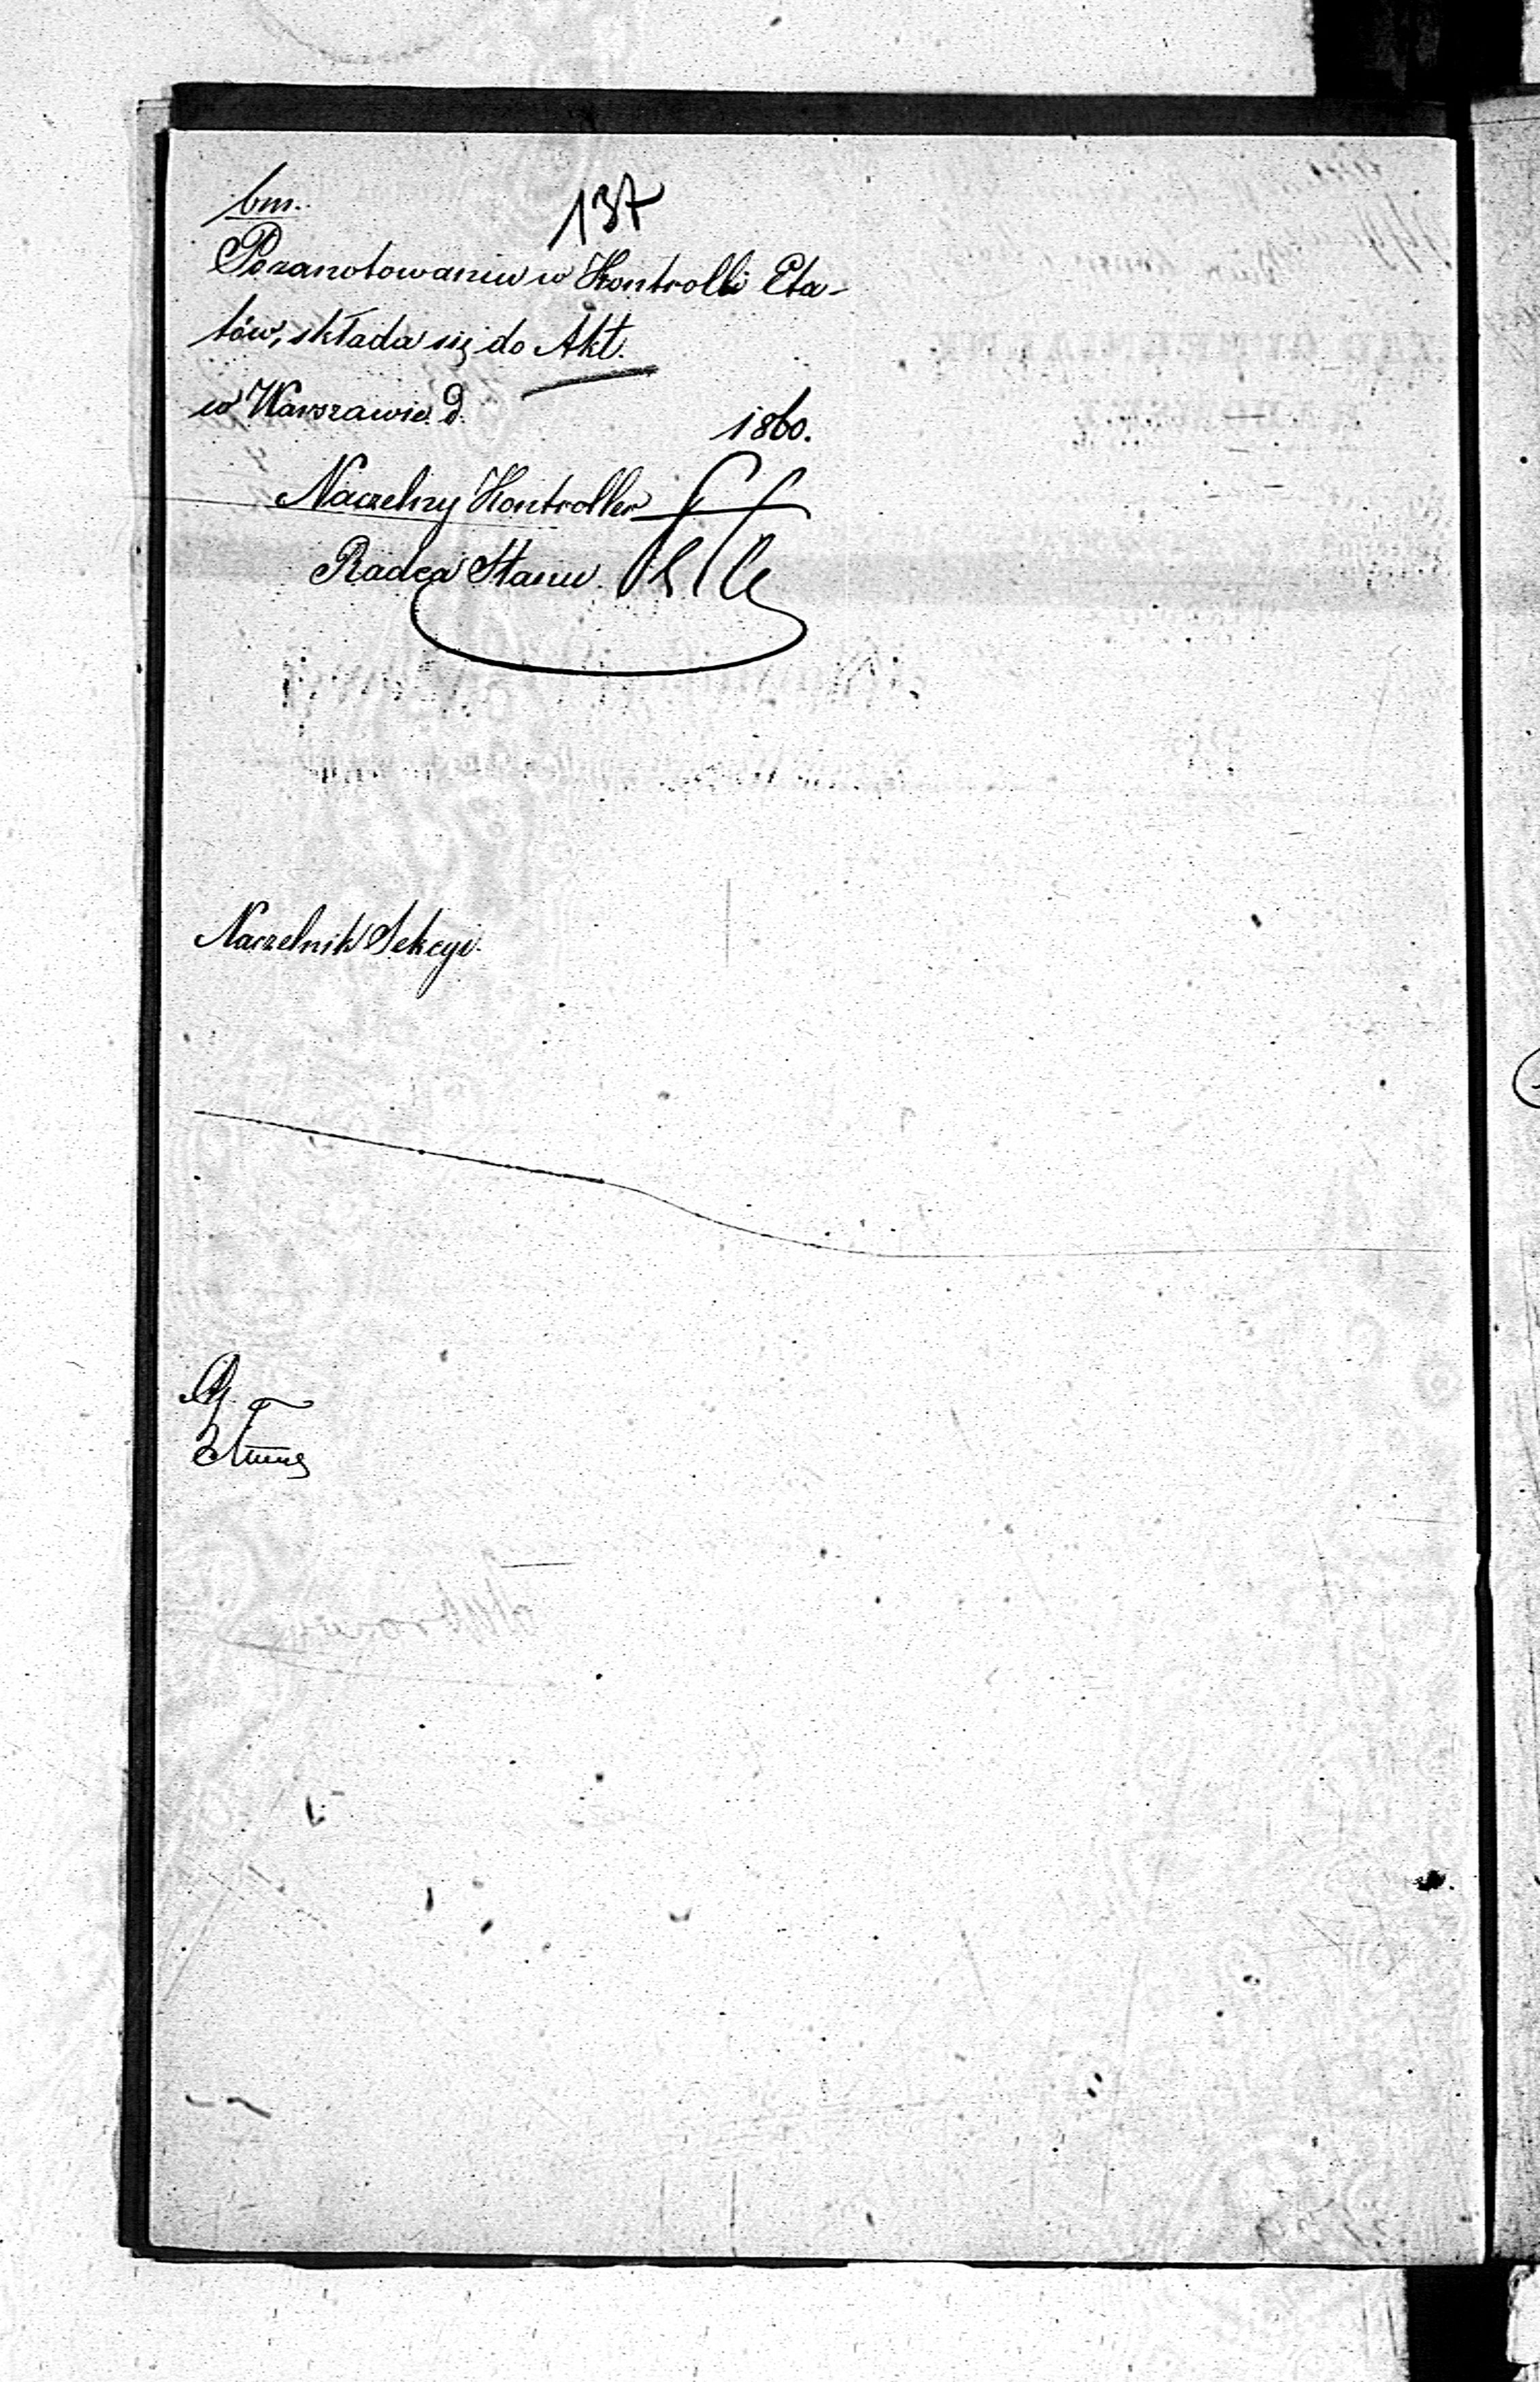 bm.
137
Po zanotowaniu w Kontrolli Eta-
tów, składa się do Akt.
w Warszawie d. 1860.
Naczelny Kontroller
Radca Stanu
Naczelnik Sekcyi